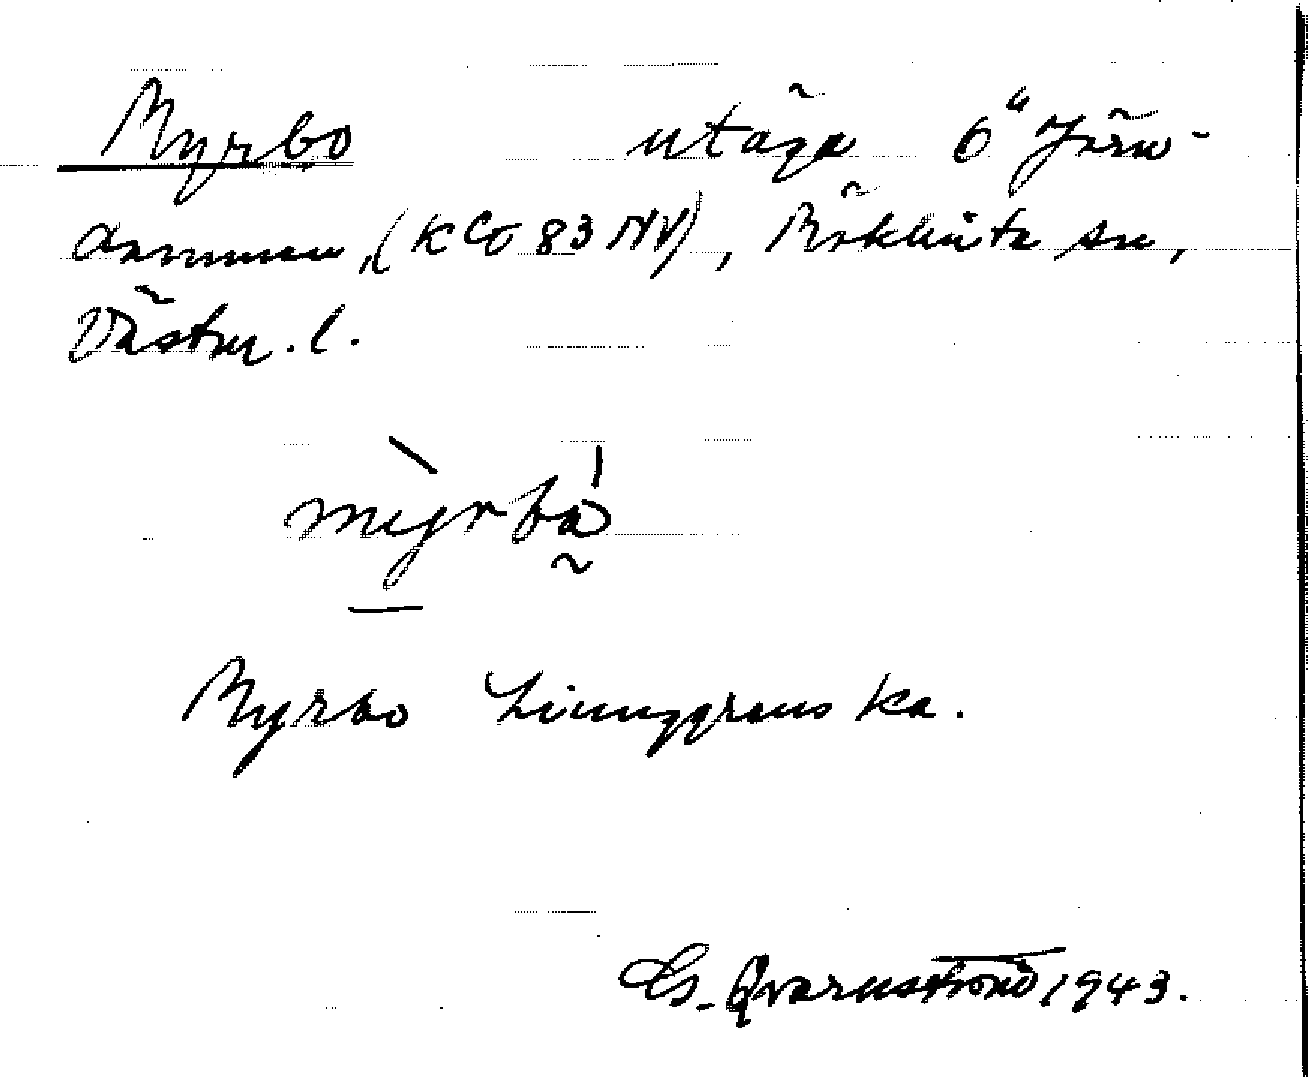 Myrbo utäga 6" Järn-
dammen, (KCO 83 NV), Möklinta sn,
Västm. l.
mỳrbå
Myrbo Linnggrens ka.
Es. Qvarnström 1943.